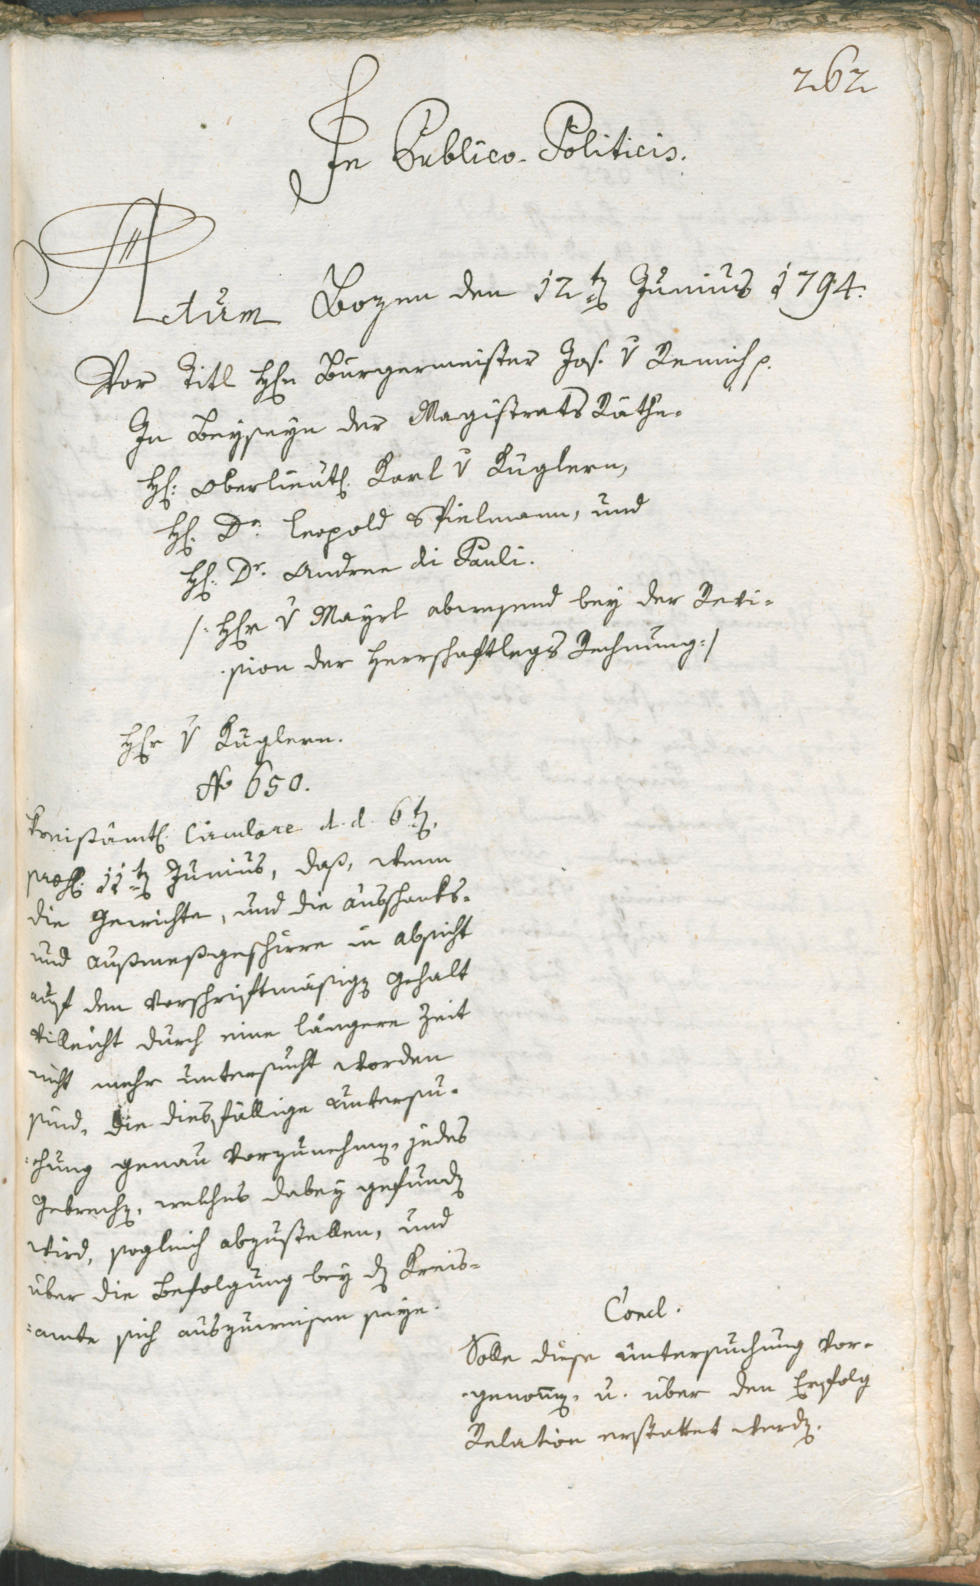 262
In Publico-Politicis.
Actum Bozen den 12t Junius 1794.
Vor Titl Hhn Bürgermeister Jos. v Remich p.
In Beyseyn der Magistrats Räthe.
Hh: Oberlieutl. Karl v Küglern,
Hh. Dr. Leopold Spielmann, und
Hh. Dr. Andree di Pauli.
/: Hhr v Mayrl abwesend bey der Revi-
sion der Herrschaftlegs Rechnung :/
Hhr v Küglern.
No 650.
Kreisämtl. Circulare d. d. 6t,
pras. 11t Junius, daß, wenn
die Gewichte, und die Ausschanks-
und Ausmeßgeschirre in Absicht
auf den vorschriftmäsig Gehalt
villeicht durch eine längere Zeit
nicht mehr untersucht worden
sind, die diesfällige Untersu-
chung genau vorzunehm, jedes
Gebrech, welches dabey gefund
wird, sogleich abzustellen, und
über die Befolgung bey d Kreis-
amte sich auszuweisen seye.
Concl.
Solle diese Untersuchung vor-
genom̄, u. über den Erfolg
Relation erstattet werd.